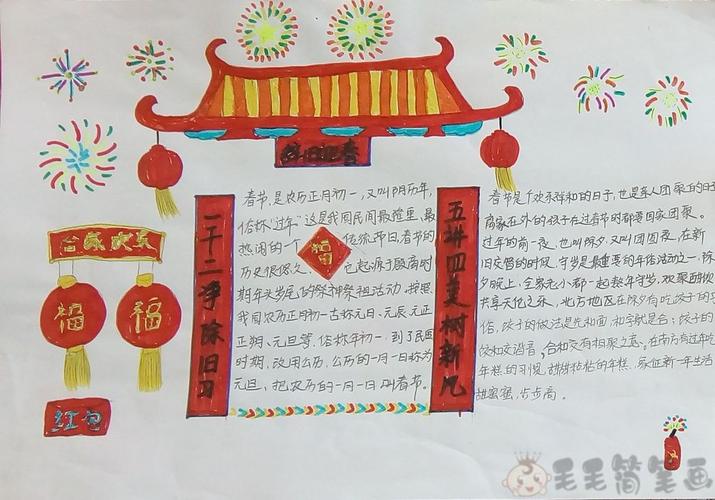 辞旧迎春
合家欢乐
福
福
红包
一干二净除旧习
五讲四美树新风
春节,是农历正月初一,又叫阴历年,
俗称"过年"这是我国民间最隆重、最
热闹的一个传统节日春节的
福
历史很悠久,它起源于殷商时
期年头岁尾的祭神祭祖活动。按照
我国农历正月初一古称元日、元辰、元正
正朔、元旦等,俗称年初一,到了民国
时期,改用公历,公历的一月一日称为
元旦,把农历的一月一日叫春节。
春节是个欢乐祥和的日子,也是亲人团聚的日子
离家在外的孩子在过春节时都要回家团聚。
过年的前一夜,也叫除夕,又叫团圆夜,在新
旧交替的时候,守岁是最重要的年俗活动之一,除
夕晚上,全家老小都一起熬年守岁,欢聚酣饮
共享天伦之乐,北方地区在除夕有吃饺子的习
俗,饺子的做法是先和面,和字就是合;饺子的
饺和交谐音,合和交有相聚之意。在南方有过年吃
年糕的习惯,甜甜粘粘的年糕,象征新一年生活
甜蜜蜜,步步高。
毛毛简笔画